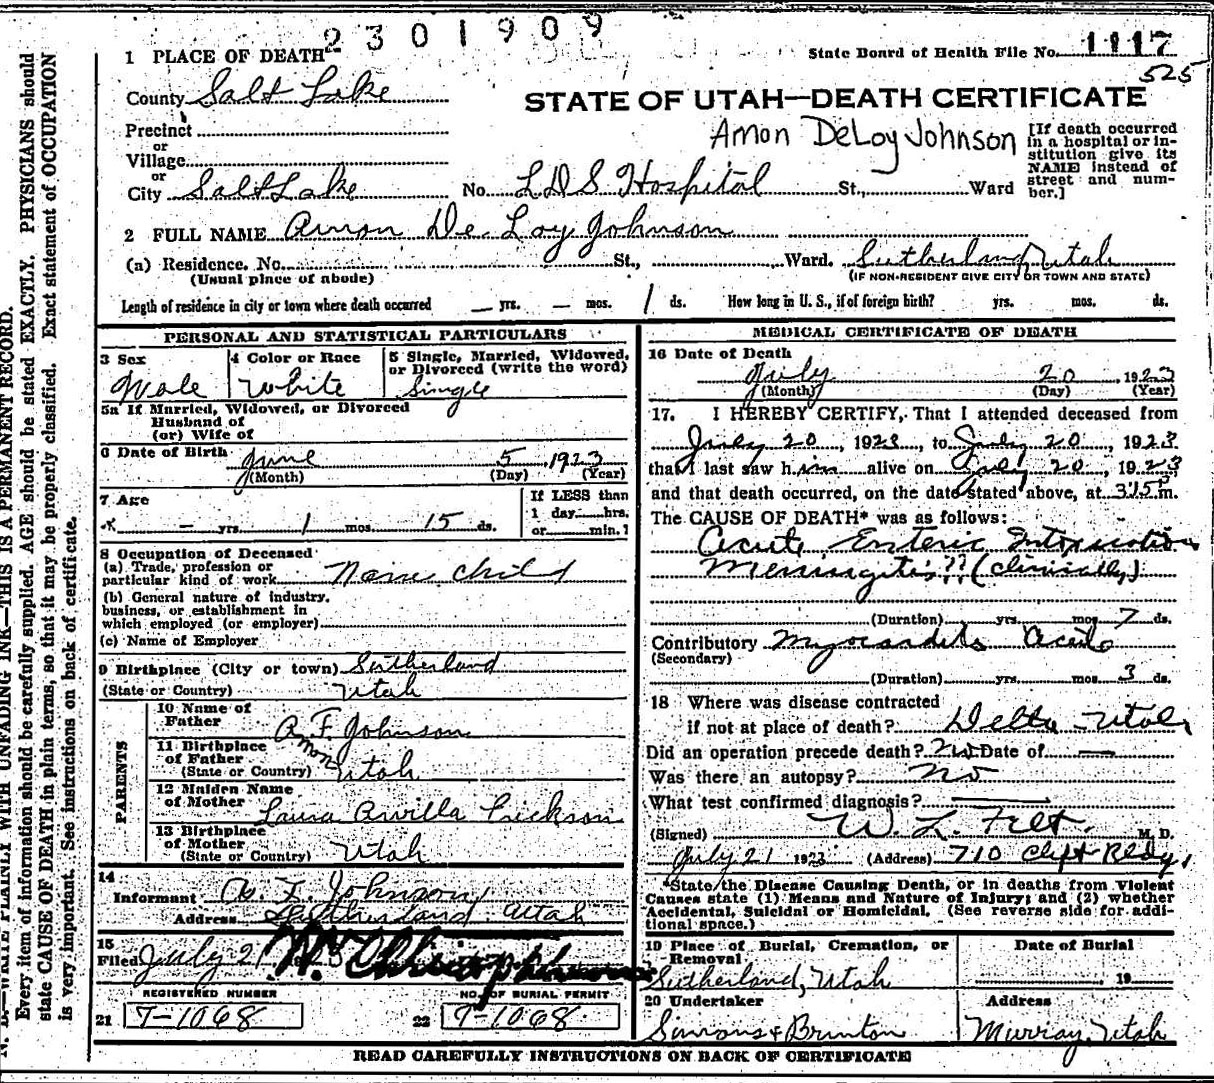 2301909
1 PLACE OF DEATH
State Board of Health File No. 1117
525
County Salt Lake
STATE OF UTAH—DEATH CERTIFICATE
Amon DeLoy Johnson
[If death occurred in a hospital or institution give its NAME instead of street and number.]
Precinct
or
Village
or
City Salt Lake No. LDS Hospital St., Ward
2 FULL NAME Amon De Loy Johnson
(a) Residence. No. St., Ward. Sutherland, Utah
(Usual place of abode) (IF NON-RESIDENT GIVE CITY OR TOWN AND STATE)
Length of residence in city or town where death occurred — yrs. — mos. 1 ds. How long in U. S., if of foreign birth? yrs. mos. ds.
PERSONAL AND STATISTICAL PARTICULARS
3 Sex
Male
4 Color or Race
White
5 Single, Married, Widowed, or Divorced (write the word)
Single
5a If Married, Widowed, or Divorced
Husband of
(or) Wife of
6 Date of Birth June 5, 1923
(Month) (Day) (Year)
7 Age
— yrs. 1 mos. 15 ds.
If LESS than
1 day....hrs.
or....min.?
8 Occupation of Deceased
(a) Trade, profession or
particular kind of work None child
(b) General nature of industry,
business, or establishment in
which employed (or employer)
(c) Name of Employer
9 Birthplace (City or town) Sutherland
(State or Country) Utah
PARENTS
10 Name of
Father A F. Johnson
11 Birthplace
of Father
(State or Country) Utah
12 Maiden Name
of Mother Laura Arvilla Erickson
13 Birthplace
of Mother
(State or Country) Utah
14
Informant A. F. Johnson
Address Sutherland Utah
15
Filed July 21
REGISTERED NUMBER NO. OF BURIAL PERMIT
21 T-1068 22 T-1068
MEDICAL CERTIFICATE OF DEATH
16 Date of Death
July 20, 1923
(Month) (Day) (Year)
17. I HEREBY CERTIFY, That I attended deceased from
July 20, 1923, to July 20, 1923
that I last saw him alive on July 20, 1923
and that death occurred, on the date stated above, at 3:15 P.m.
The CAUSE OF DEATH* was as follows:
Acute Enteric Intoxication
Meningitis?? (Clinically)
(Duration) yrs. mos. 7 ds.
Contributory Myocarditis
(Secondary)
(Duration) yrs. mos. 3 ds.
18 Where was disease contracted
if not at place of death? Delta - Utah
Did an operation precede death? No Date of —
Was there an autopsy? No
What test confirmed diagnosis? —
(Signed) W. L. M. D.
July 21 1923 (Address) 710 Clift Bldg,
*State the Disease Causing Death, or in deaths from Violent
Causes state (1) Means and Nature of Injury; and (2) whether
Accidental, Suicidal or Homicidal. (See reverse side for additional space.)
19 Place of Burial, Cremation, or
Removal
Sutherland, Utah
Date of Burial
19
20 Undertaker
Simons & Brinton
Address
Murray, Utah
READ CAREFULLY INSTRUCTIONS ON BACK OF CERTIFICATE
N. B.—WRITE PLAINLY WITH UNFADING INK—THIS IS A PERMANENT RECORD.
Every item of information should be carefully supplied. AGE should be stated EXACTLY. PHYSICIANS should
state CAUSE OF DEATH in plain terms, so that it may be properly classified. Exact statement of OCCUPATION
is very important. See instructions on back of certificate.